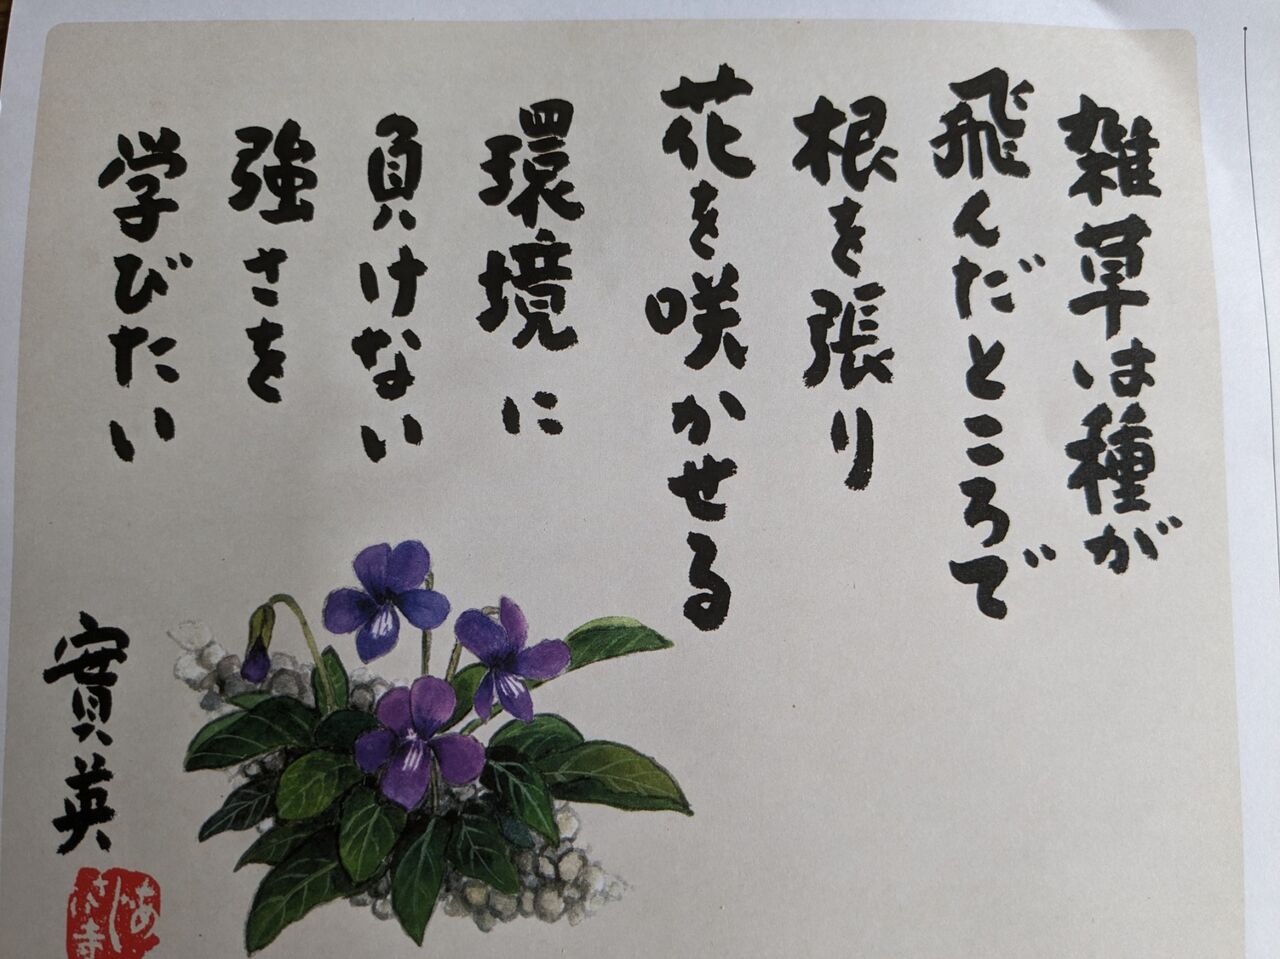 雑草は種が
飛んだところで
根を張り
花を咲かせる
環境に
負けない
強さを
学びたい
實英